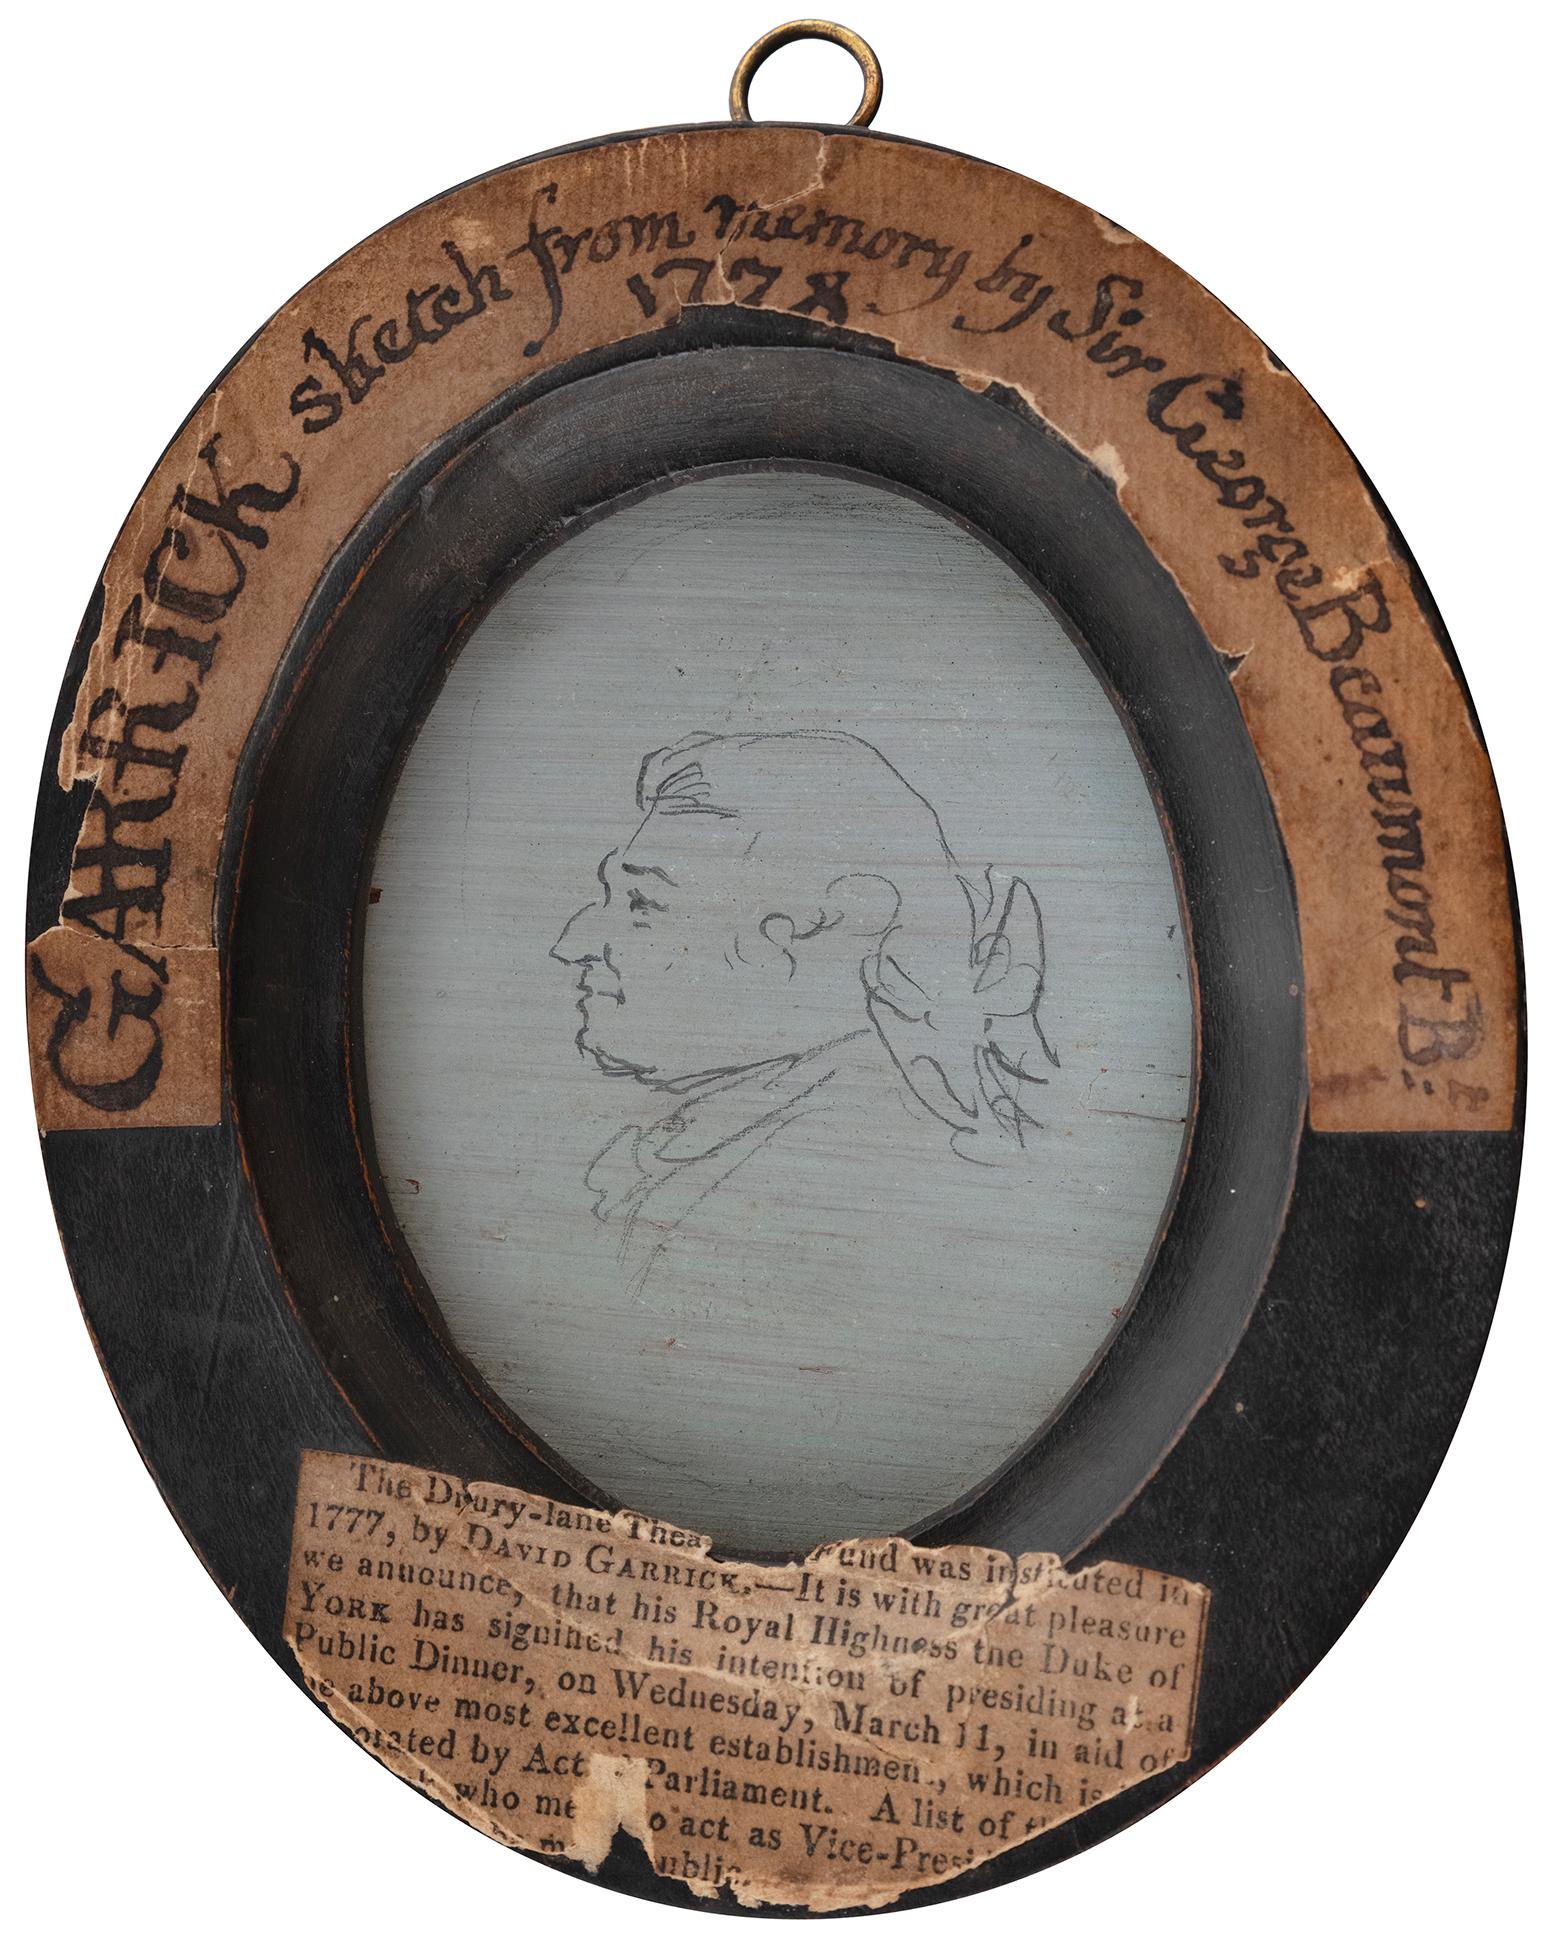 GARRICK sketch from memory by Sir George Beaumont B:t
1778.
The Drury-lane Thea Fund was instituted in
1777, by DAVID GARRICK.—It is with great pleasure
we announce, that his Royal Highness the Duke of
YORK has signified his intention of presiding at a
Public Dinner, on Wednesday, March 11, in aid of
e above most excellent establishment, which is
orated by Act Parliament. A list of
who me o act as Vice-Presi
ublic